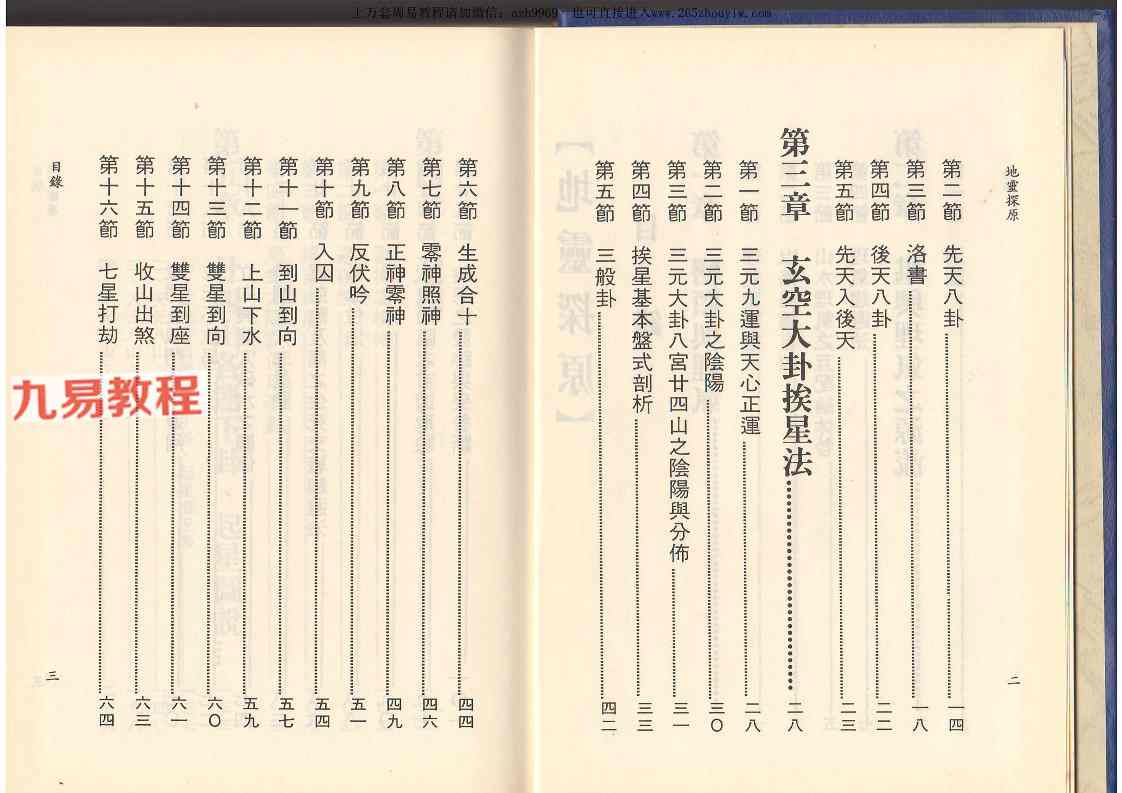 上万套周易教程请加微信：azh9969 也可直接进入www.265zhouyiw.com
地靈探原
二
第二節 先天八卦 一四
第三節 洛書 一八
第四節 後天八卦 二二
第五節 先天入後天 二三
第三章 玄空大卦挨星法 二八
第一節 三元九運與天心正運 二八
第二節 三元大卦之陰陽 三〇
第三節 三元大卦八宮廿四山之陰陽與分佈 三一
第四節 挨星基本盤式剖析 三三
第五節 三般卦 四二
第六節 生成合十 四四
第七節 零神照神 四六
第八節 正神零神 四九
第九節 反伏吟 五一
第十節 入囚 五四
第十一節 到山到向 五七
第十二節 上山下水 五九
第十三節 雙星到向 六〇
第十四節 雙星到座 六一
第十五節 收山出煞 六三
第十六節 七星打劫 六四
目錄
三
九易教程